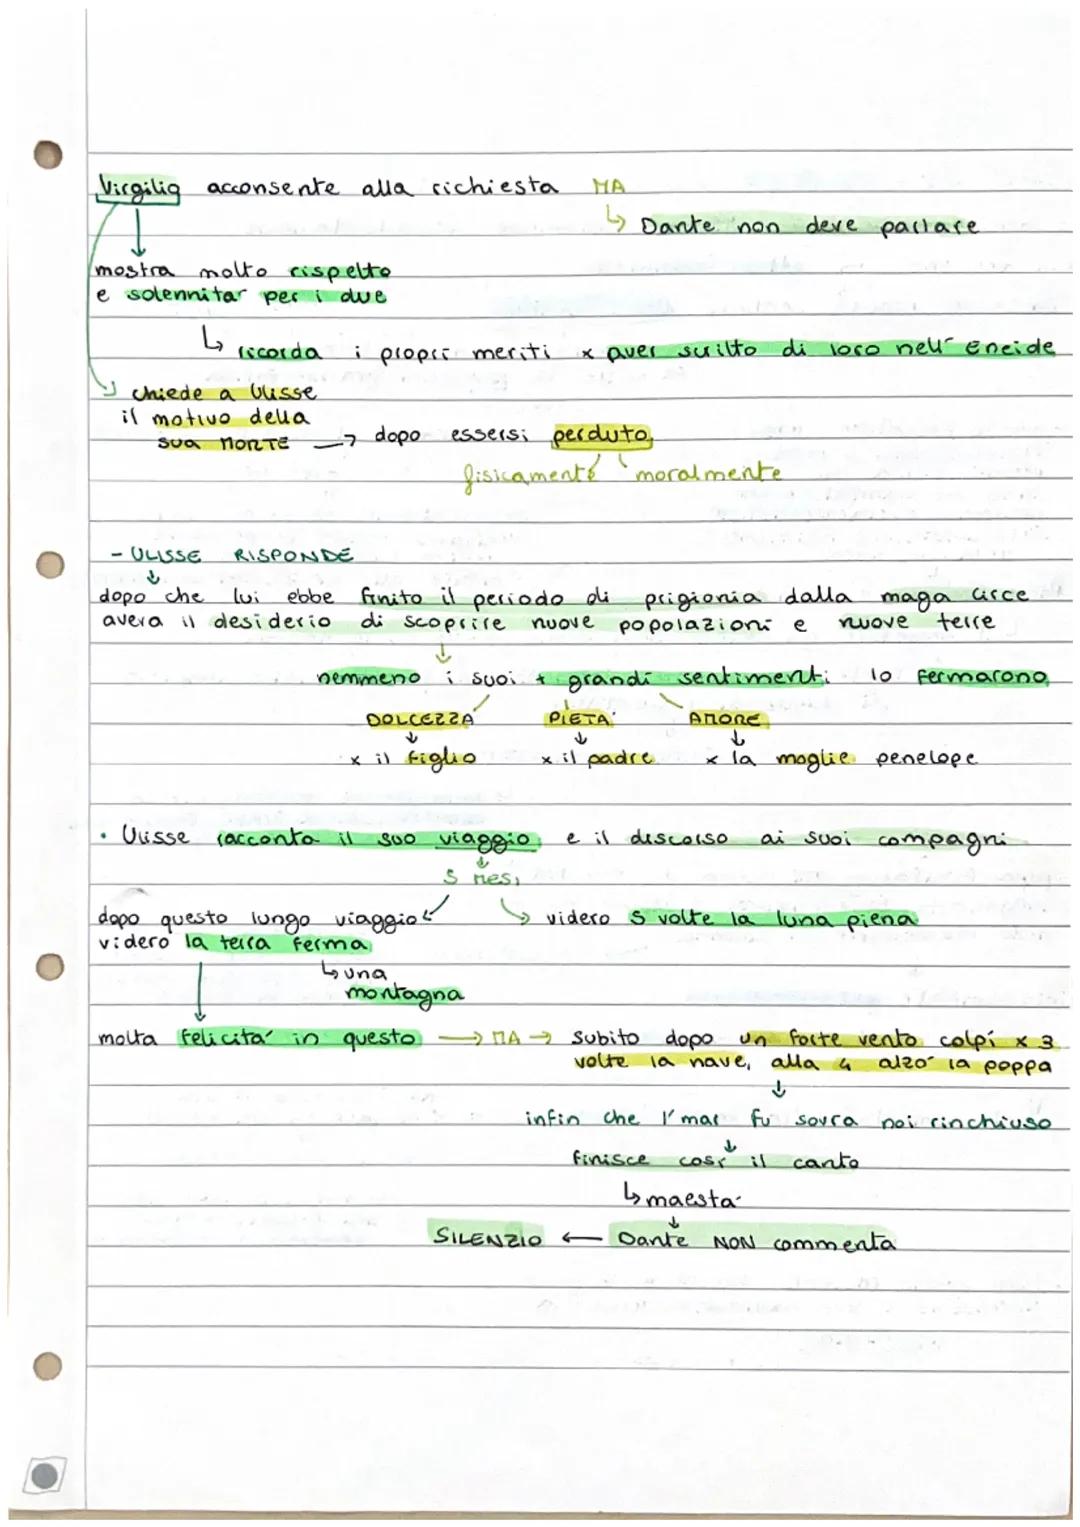 Virgilio acconsente alla richiesta MA
↳ Dante non deve parlare
mostra molto rispetto
e solennita' per i due
↳ ricorda i propri meriti x aver scritto di loro nell' Eneide
chiede a Ulisse
il motivo della
sua MORTE → dopo essersi perduto
fisicamente moralmente
- ULISSE RISPONDE
↓
dopo che lui ebbe finito il periodo di prigionia dalla maga Circe
aveva il desiderio di scoprire nuove popolazioni e nuove terre
↓
nemmeno i suoi + grandi sentimenti lo fermarono
DOLCEZZA PIETA' AMORE
↓ ↓ ↓
x il figlio x il padre x la moglie penelope
• Ulisse racconta il suo viaggio e il discorso ai suoi compagni
↓
5 mesi
dopo questo lungo viaggio → videro 5 volte la luna piena
videro la terra ferma
↳ una
montagna
molta felicita' in questo → MA → subito dopo un forte vento colpí x 3
volte la nave, alla 4 alzo' la poppa
↓
infin che l'mar fu sovra noi rinchiuso
↓
finisce cosi' il canto
↳ maesta'
↓
SILENZIO ← Dante NON commenta